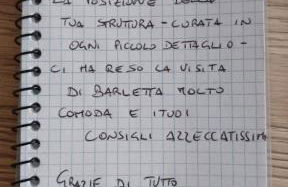 LA POSIZIONE DELLA
TUA STRUTTURA - CURATA IN
OGNI PICCOLO DETTAGLIO -
CI HA RESO LA VISITA
DI BARLETTA MOLTO
COMODA E I TUOI
CONSIGLI AZZECCATISSIMI
GRAZIE DI TUTTO